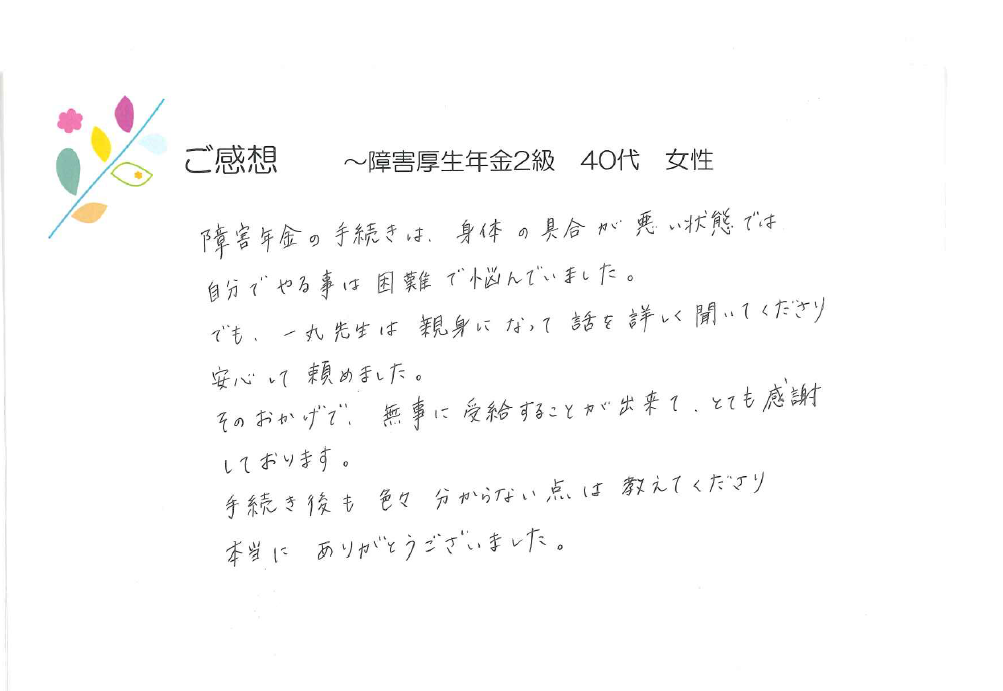 ご感想　～障害厚生年金2級　40代　女性
障害年金の手続きは、身体の具合が悪い状態では
自分でやる事は困難で悩んでいました。
でも、一丸先生は親身になって話を詳しく聞いてくださり
安心して頼めました。
そのおかげで、無事に受給することが出来て、とても感謝
しております。
手続き後も色々分からない点は教えてくださり
本当にありがとうございました。